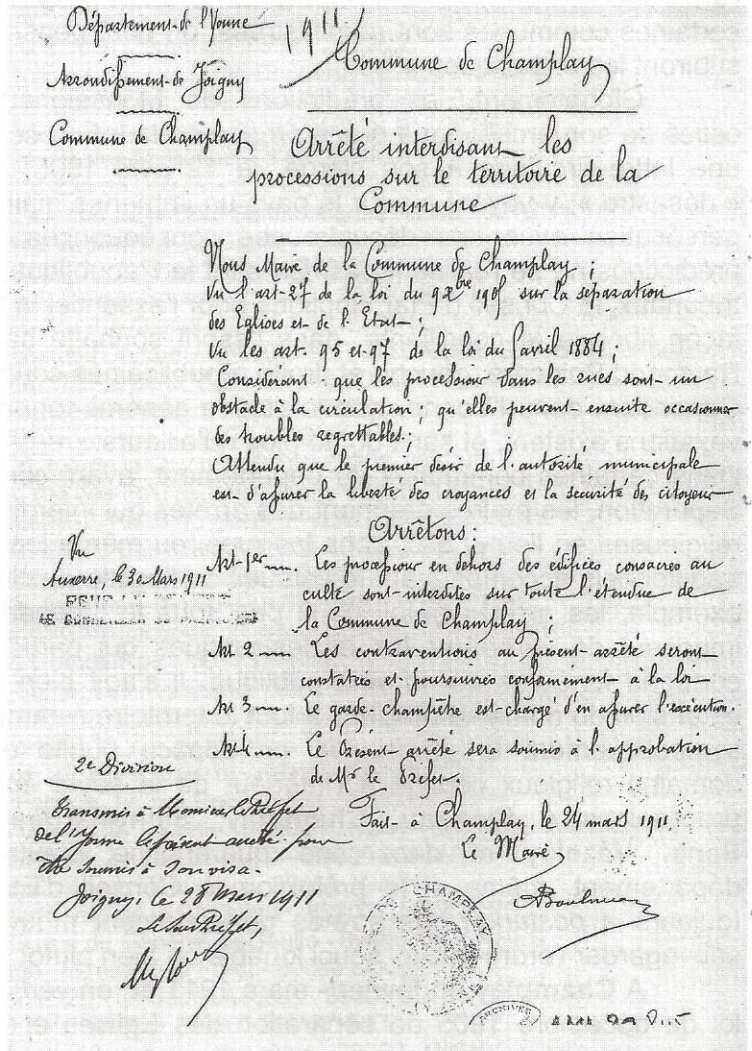 Département de l'Yonne
1911
Commune de Champlay
Arrondissement de Joigny
Commune de Champlay
Arrêté interdisant les
processions sur le térritoire de la
Commune
Nous Maire de la Commune de Champlay ;
Vu l'art. 27 de la loi du 9 Xbre 1905 sur la séparation
des Eglises et de l'Etat ;
Vu les art. 95 et 97 de la loi du 5 avril 1884 ;
Considerant que les processions dans les rues sont un
obstacle à la circulation ; qu'elles peuvent ensuite occasionner
des troubles regrettables ;
Attendu que le premier désir de l'autorité municipale
est d'assurer la liberté des croyances et la securité des citoyens
Arrêtons :
Art. 1er Les processions en dehors des édifices consacrés au
culte sont interdites sur toute l'étendue de
la Commune de Champlay ;
Art 2 Les contraventions au présent arrêté seront
constatées et poursuivies conformément à la loi
Art 3 Le garde-champêtre est chargé d'en assurer l'exécution.
Art 4 Le Présent arrêté sera soumis à l'approbation
de Mr le Préfet.
Fait à Champlay, le 24 mars 1911.
Le Maire
Vu
Auxerre, le 30 Mars 1911
POUR LE
LE CONSEILLER DE
2e Division
Transmis à Monsieur le Préfet
de l'Yonne le présent arrêté pour
être soumis à son visa.
Joigny, le 28 Mars 1911
Le Sous Préfet,
CHAMPLAY
ARCHIVES